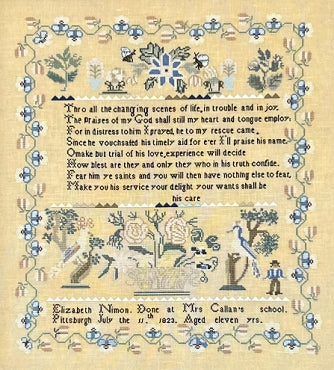 Thro all the changing scenes of life, in trouble and in joy,
The Praises of my God shall still my heart and tongue employ;
For in distress to him I prayed, he to my rescue came.
Since he vouchsafed his timely aid for e'er I'll praise his name.
O make but trial of his love, experience will decide
How blest are they and only they who in his truth confide.
Fear him ye saints and you will then have nothing else to fear,
Make you his service your delight your wants shall be
his care
Elizabeth Nimon. Done at Mrs Callan's school.
Pittsburgh July the 11.th 1823. Aged eleven yrs.